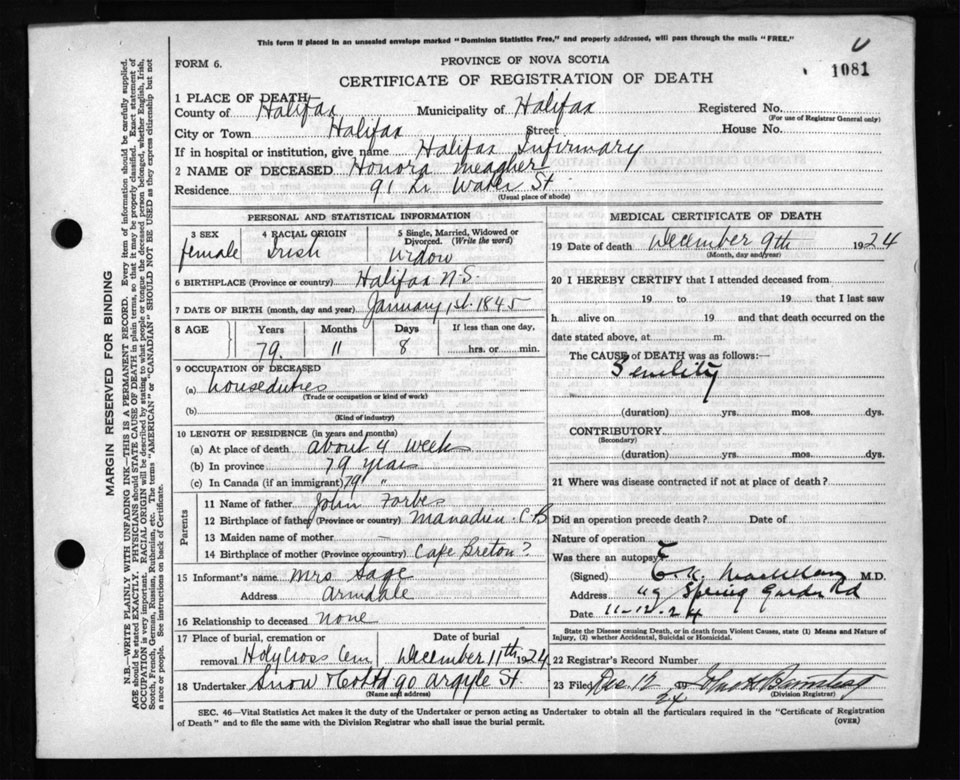 This form if placed in an unsealed envelope marked "Dominion Statistics Free," and properly addressed, will pass through the mails "FREE."
FORM 6.
PROVINCE OF NOVA SCOTIA
CERTIFICATE OF REGISTRATION OF DEATH
1081
1 PLACE OF DEATH
County of Halifax Municipality of Halifax Registered No.
(For use of Registrar General only)
City or Town Halifax Street House No.
If in hospital or institution, give name Halifax Infirmary
2 NAME OF DECEASED Honora Meagher
Residence 91 Water St
(Usual place of abode)
MARGIN RESERVED FOR BINDING
N.B.—WRITE PLAINLY WITH UNFADING INK—THIS IS A PERMANENT RECORD. Every item of information should be carefully supplied.
AGE should be stated EXACTLY. PHYSICIANS should STATE CAUSE OF DEATH in plain terms, so that it may be properly classified. Exact statement of
OCCUPATION is very important. RACIAL ORIGIN will be described by stating to what people or tongue the deceased person belonged, whether English, Irish,
Scotch, French, German, Russian, Ruthenian, etc. The terms "AMERICAN" or "CANADIAN" SHOULD NOT BE USED as they express citizenship but not
a race or people. See instructions on back of Certificate.
PERSONAL AND STATISTICAL INFORMATION
3 SEX 4 RACIAL ORIGIN 5 Single, Married, Widowed or
Divorced. (Write the word)
female Irish Widow
6 BIRTHPLACE (Province or country) Halifax N.S.
7 DATE OF BIRTH (month, day and year) January 1st 1845
8 AGE Years Months Days If less than one day,
79 11 8 hrs. or min.
9 OCCUPATION OF DECEASED
(a) houseduties
(Trade or occupation or kind of work)
(b)
(Kind of industry)
10 LENGTH OF RESIDENCE (in years and months)
(a) At place of death about 4 week
(b) In province 79 years
(c) In Canada (if an immigrant) 79 "
Parents
11 Name of father John Forbes
12 Birthplace of father (Province or country) Manadieu C B
13 Maiden name of mother
14 Birthplace of mother (Province or country) Cape Breton?
15 Informant's name Mrs Sage
Address Armdale
16 Relationship to deceased none
17 Place of burial, cremation or Date of burial
removal Holy Cross Cem December 11th 1924
18 Undertaker Snow & Co Ltd 90 Argyle St.
(Name and address)
MEDICAL CERTIFICATE OF DEATH
19 Date of death December 9th 1924
(Month, day and year)
20 I HEREBY CERTIFY that I attended deceased from
19 to 19 that I last saw
h alive on 19 and that death occurred on the
date stated above, at m.
The CAUSE of DEATH was as follows:—
Senility
(duration) yrs. mos. dys.
CONTRIBUTORY
(Secondary)
(duration) yrs. mos. dys.
21 Where was disease contracted if not at place of death?
Did an operation precede death? Date of
Nature of operation
Was there an autopsy?
(Signed) E. K. M.D.
Address 49 Spring Garden Rd
Date 11-12-24
State the Disease causing Death, or in death from Violent Causes, state (1) Means and Nature of
Injury, (2) whether Accidental, Suicidal or Homicidal.
22 Registrar's Record Number
23 Filed Dec 12 24
(Division Registrar)
SEC. 46—Vital Statistics Act makes it the duty of the Undertaker or person acting as Undertaker to obtain all the particulars required in the "Certificate of Registration
of Death" and to file the same with the Division Registrar who shall issue the burial permit.
(OVER)